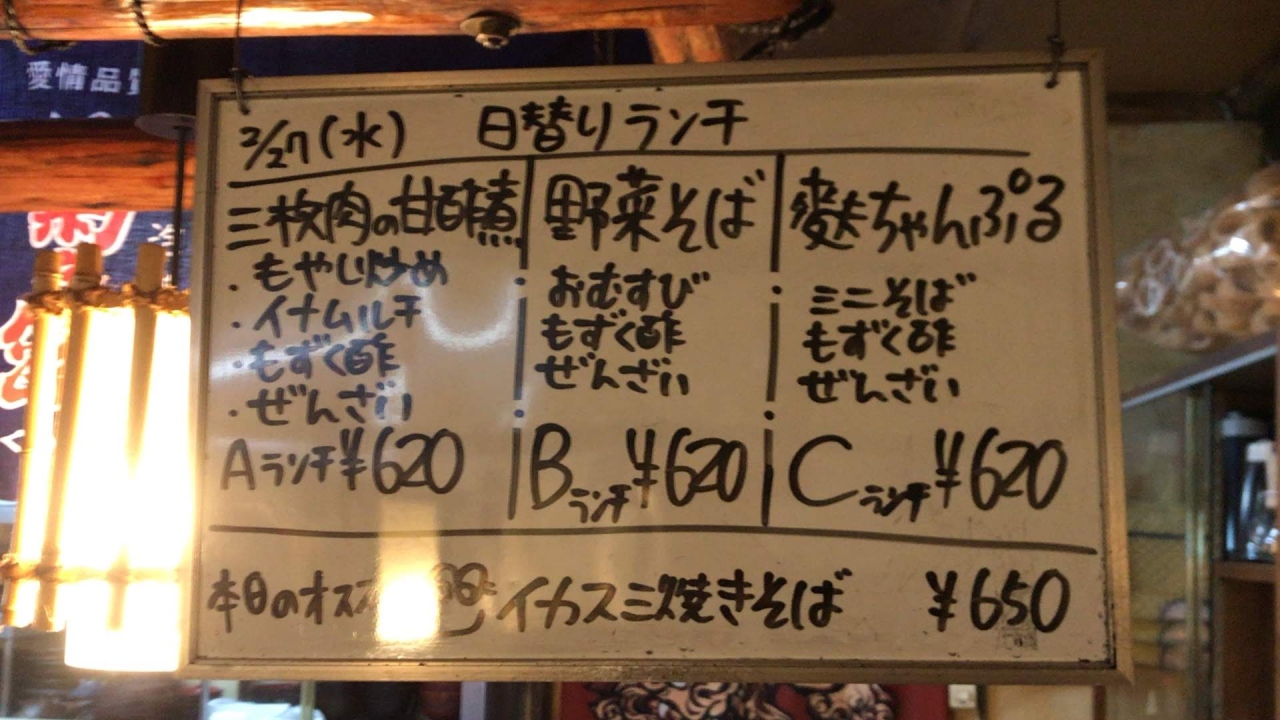 愛情品質
2/27(水) 日替りランチ
三枚肉の甘酢煮
・もやし炒め
・イナムルチ
・もずく酢
・ぜんざい
Aランチ¥620
野菜そば
おむすび
もずく酢
ぜんざい
Bランチ¥620
麩ちゃんぷる
ミニそば
もずく酢
ぜんざい
Cランチ¥620
本日のオスス イカスミ焼きそば ¥650